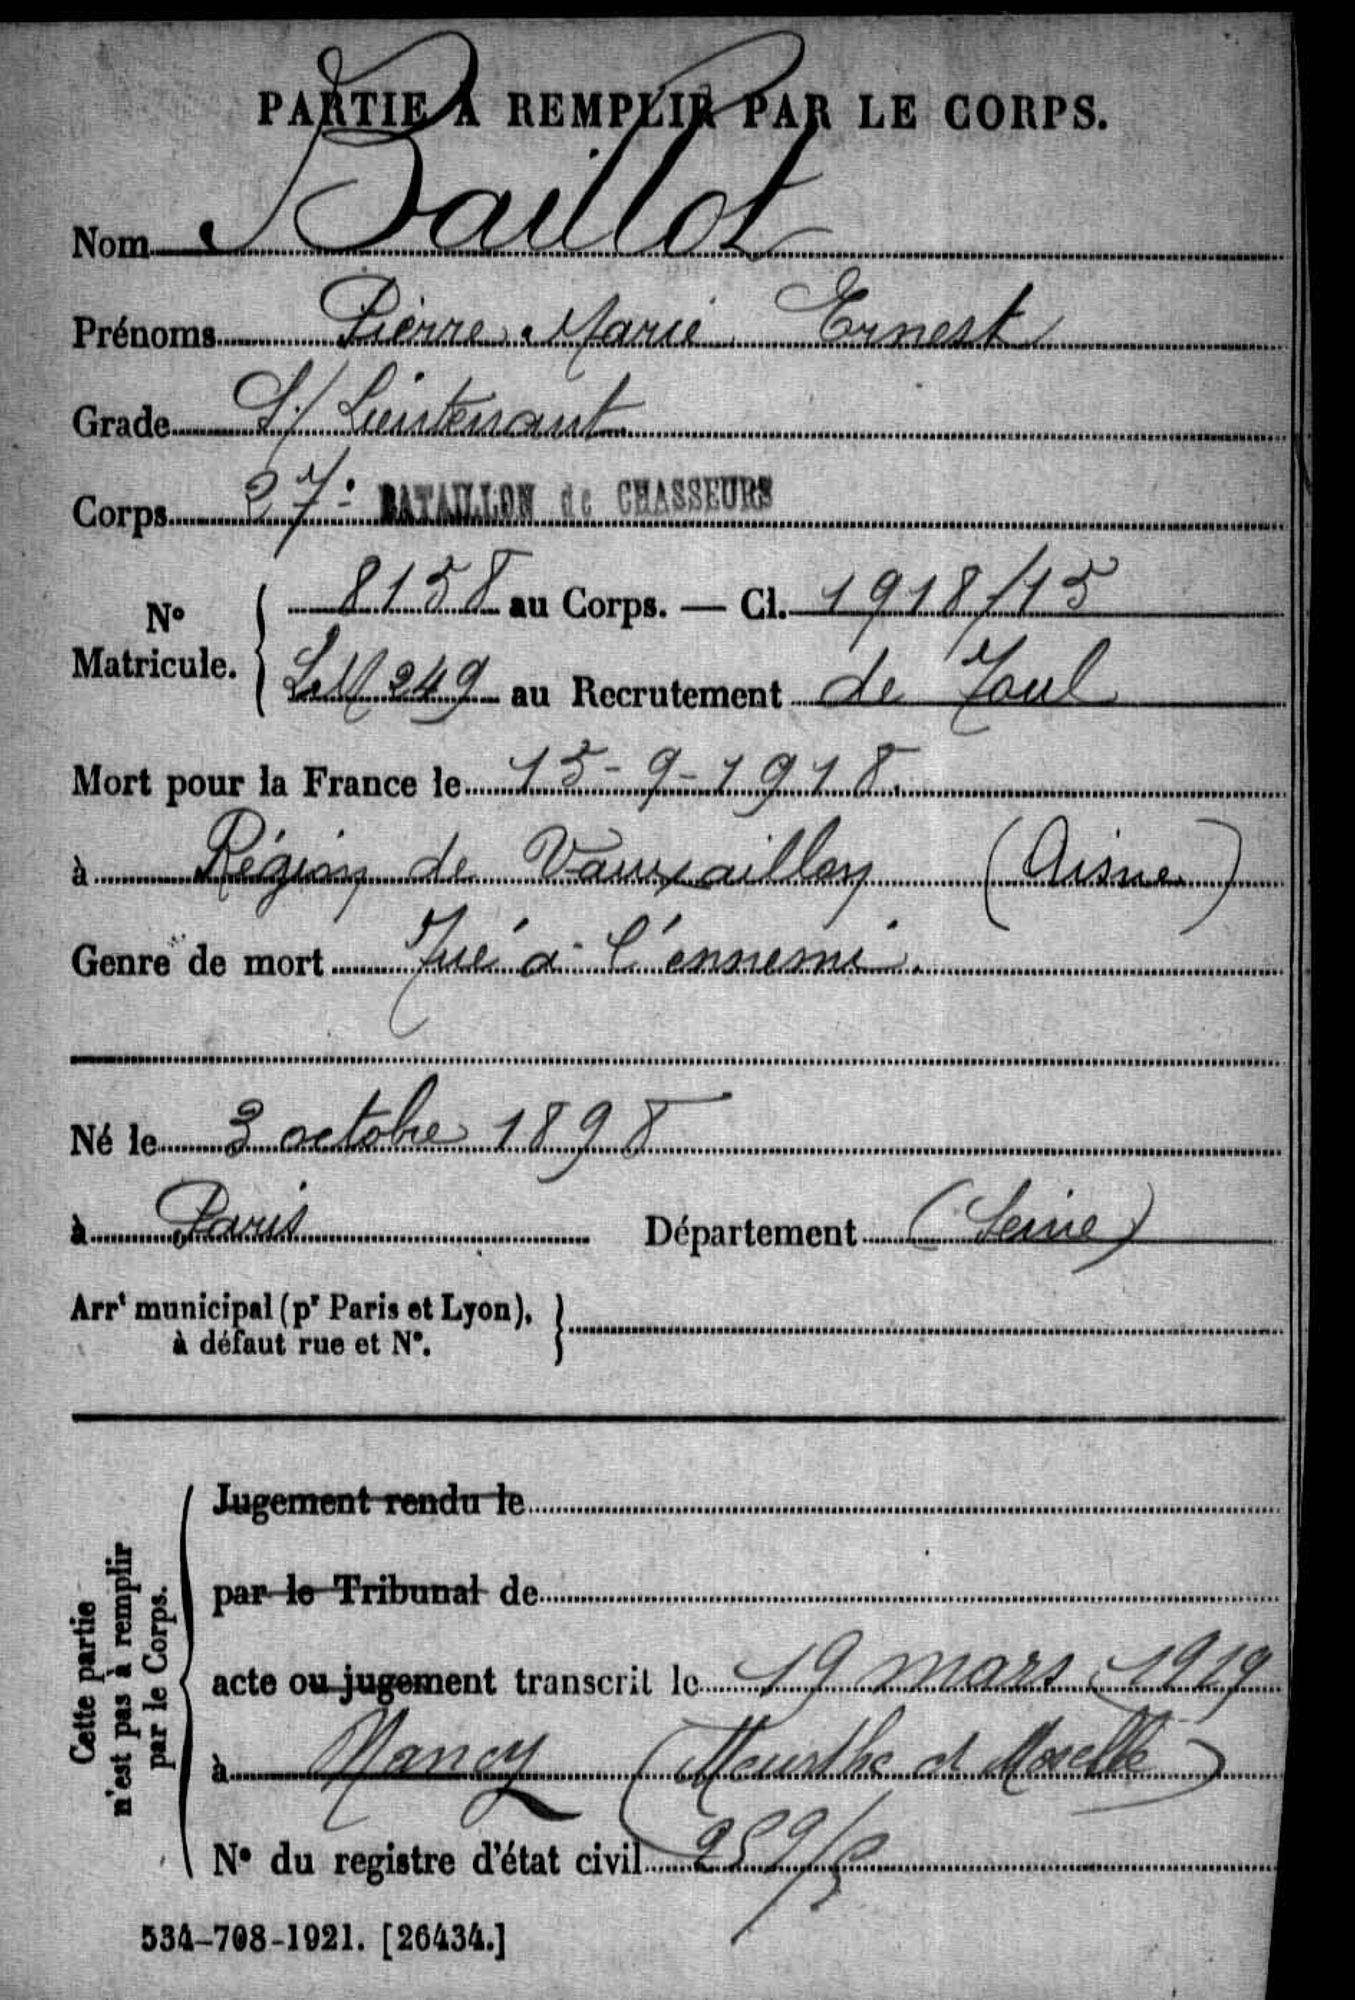 PARTIE À REMPLIR PAR LE CORPS.
Nom Baillot
Prénoms Pierre Marie Ernest
Grade S/ Lieutenant
Corps 27e BATAILLON de CHASSEURS
N° Matricule. { 8158 au Corps. — Cl. 1918/15
249 au Recrutement de Toul
Mort pour la France le 15-9-1918.
à Région de Vauxaillon (Aisne)
Genre de mort Tué à l'ennemi.
Né le 3 octobre 1898
à Paris Département (Seine)
Arrt municipal (pr Paris et Lyon), }
à défaut rue et N°.
Cette partie
n'est pas à remplir
par le Corps.
Jugement rendu le
par le Tribunal de
acte ou jugement transcrit le 19 mars 1919
à Nancy (Meurthe et Moselle)
N° du registre d'état civil
534-708-1921. [26434.]